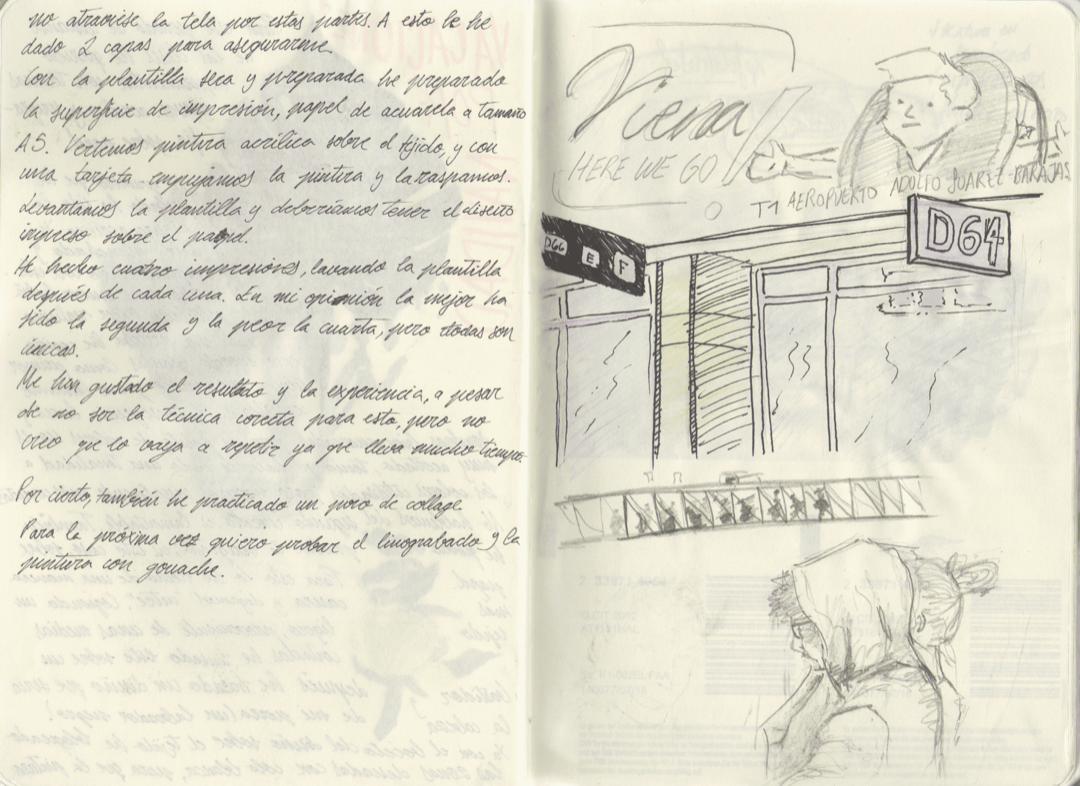 no atraviese la tela por estas partes. A esto le he
dado 2 capas para asegurarme.
Con la plantilla seca y preparada he preparado
la superficie de impresión, papel de acuarela a tamaño
A5. Vertemos pintura acrílica sobre el tejido, y con
una tarjeta empujamos la pintura y la raspamos.
Levantamos la plantilla y deberíamos tener el diseño
impreso sobre el papel.
He hecho cuatro impresiones, lavando la plantilla
después de cada una. En mi opinión la mejor ha
sido la segunda y la peor la cuarta, pero todas son
únicas.
Me han gustado el resultado y la experiencia, a pesar
de no ser la técnica correcta para esto, pero no
creo que lo vaya a repetir ya que lleva mucho tiempo.
Por cierto, también he practicado un poco de collage
Para la próxima vez quiero probar el linograbado y la
pintura con gouache.
Viena
HERE WE GO
T1 AEROPUERTO ADOLFO SUAREZ-BARAJAS
D66 E F
D64